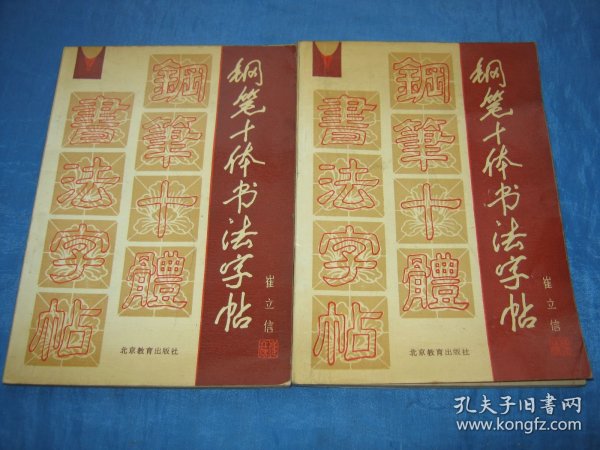 鋼筆十體
書法字帖
钢笔十体书法字帖
崔立信
北京教育出版社
鋼筆十體
書法字帖
钢笔十体书法字帖
崔立信
北京教育出版社
孔夫子旧书网
www.kongfz.com